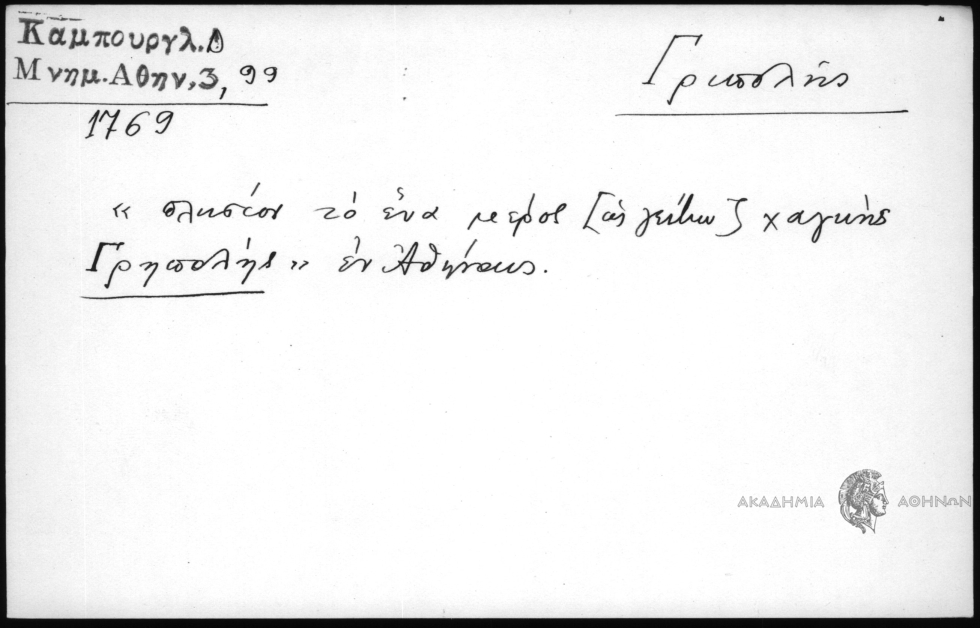 Καμπουργλ.Δ
Μνημ.Αθην,3, 99
1769
Γριπολής
« πλησίον τὸ ἕνα μέρος [ὡς γείτων] χαγκῆς
Γρηπολής » ἐν Ἀθήναις.
ΑΚΑΔΗΜΙΑ ΑΘΗΝΩΝ